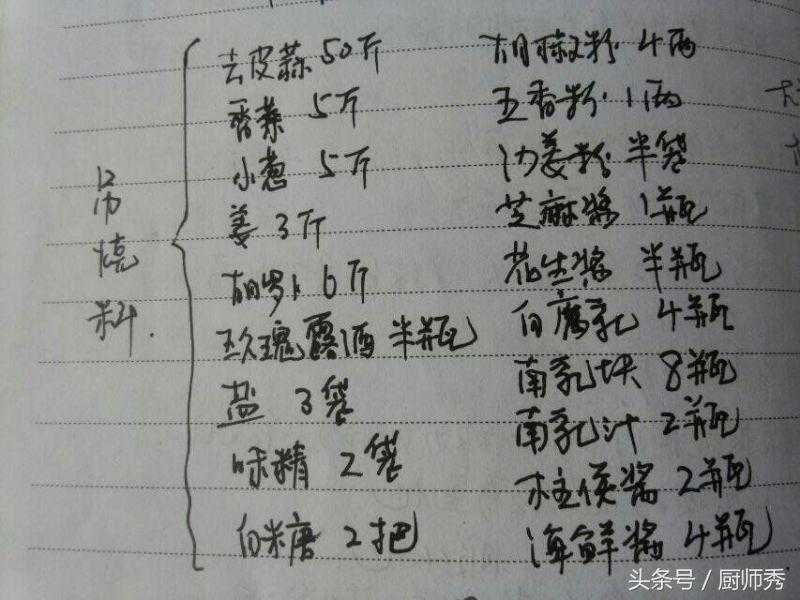 吊烧料.
去皮蒜 50斤
香菜 5斤
小葱 5斤
姜 3斤
胡萝卜 6斤
玫瑰露酒 半瓶
盐 3袋
味精 2袋
白糖 2把
胡椒粉 4两
五香粉 1两
沙姜粉 半袋
芝麻酱 1瓶
花生酱 半瓶
白腐乳 4瓶
南乳块 8瓶
南乳汁 2瓶
柱侯酱 2瓶
海鲜酱 4瓶
头条号 / 厨师秀